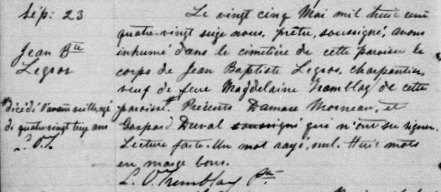 Sép: 23
Jean Bte
Legros
décédé
de quatre vingt treize ans
L. O. T.
Le vingt cinq Mai mil huit cent
quatre-vingt seize nous, prêtre, soussigné, avons
inhumé dans le cimetière de cette paroisse le
corps de Jean Baptiste Legros, charpentier,
veuf de feue Magdelaine Tremblay de cette
paroisse. Présents Damase Morneau, et
Gaspard Duval soussigné qui n'ont su signer.
Lecture faite. Un mot rayé, nul. Huit mots
en marge bons.
L. O. Tremblay Ptre